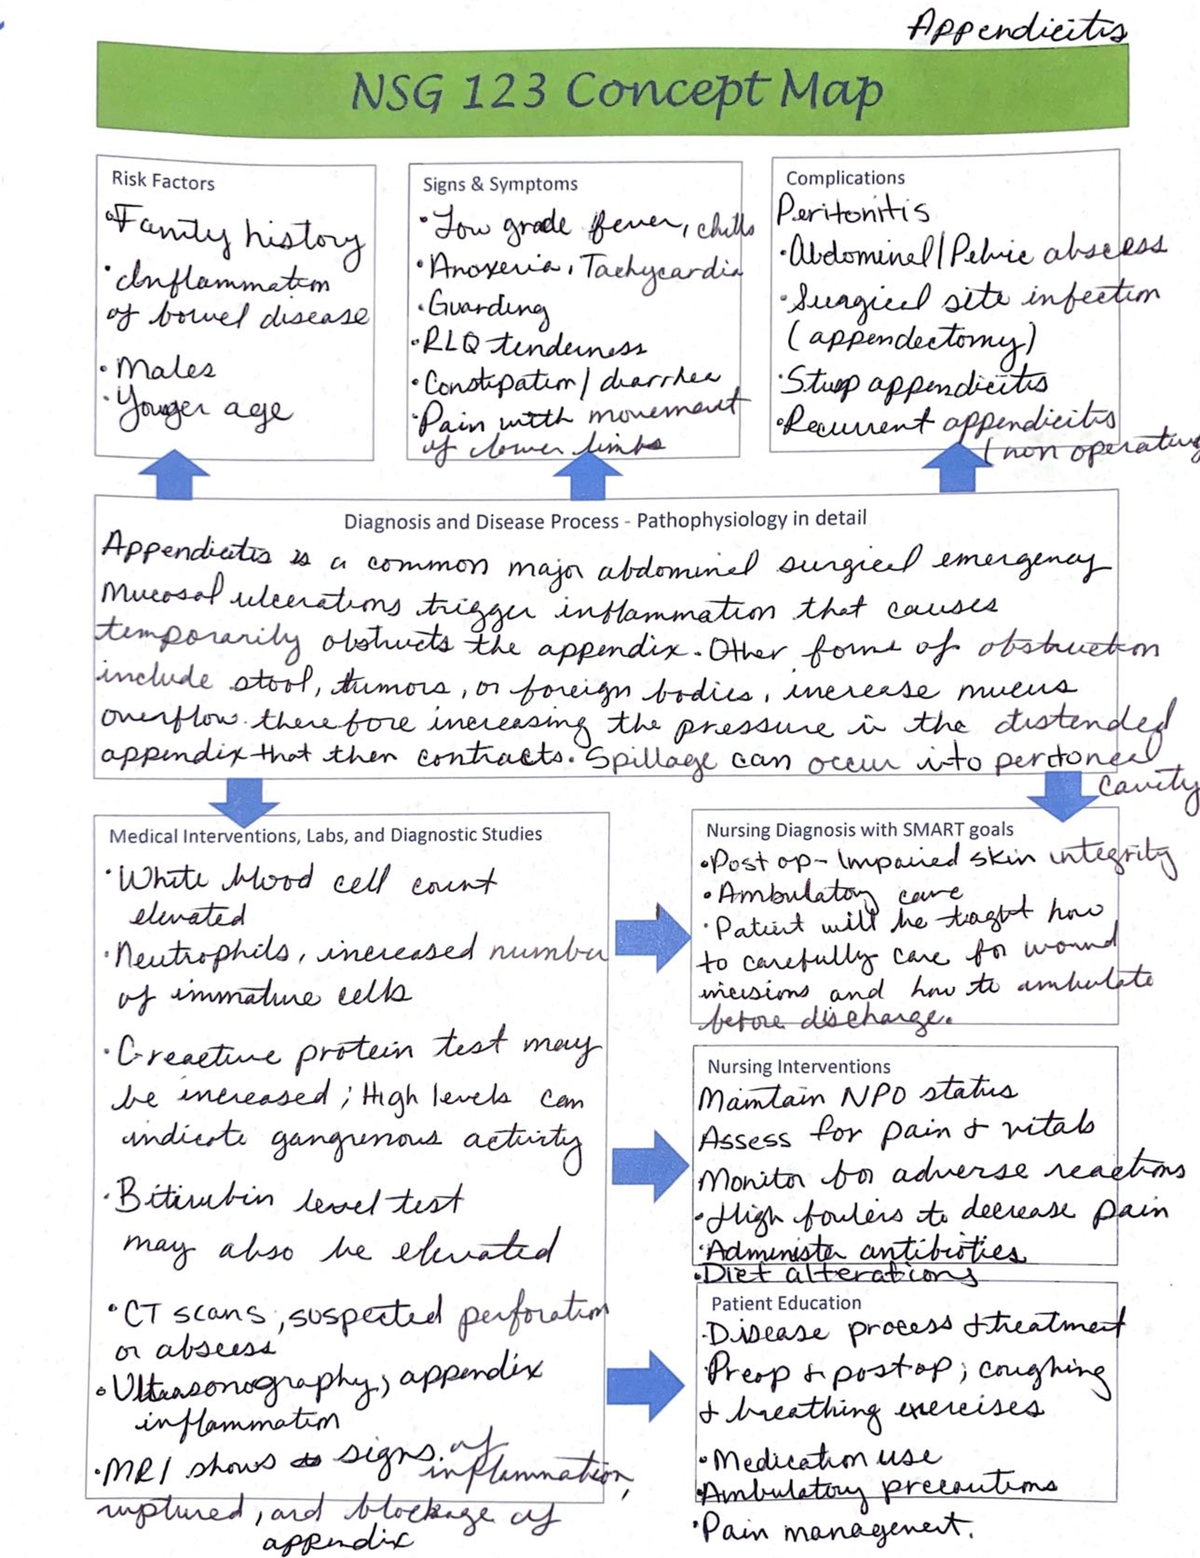 Appendicitis
NSG 123 Concept Map
Risk Factors
•Family history
•Inflammation
of bowel disease
•Males
•Younger age
Signs & Symptoms
•Low grade fever, chills
•Anoxeria, Tachycardia
•Guarding
•RLQ tenderness
•Constipation/diarrhea
•Pain with movement
of lower limbs
Complications
Peritonitis
•Abdominal/Pelvic abscess
•Surgical site infection
(appendectomy)
•Stump appendicitis
•Recurrent appendicitis
(non operative
Diagnosis and Disease Process - Pathophysiology in detail
Appendicitis is a common major abdominal surgical emergency
Mucosal ulcerations trigger inflammation that causes
temporarily obstructs the appendix. Other forms of obstruction
include stool, tumors, or foreign bodies, increase mucus
overflow. therefore increasing the pressure in the distended
appendix that then contracts. Spillage can occur into peritoneal
cavity
Medical Interventions, Labs, and Diagnostic Studies
•White blood cell count
elevated
•Neutrophils, increased number
of immature cells
•C-reactive protein test may
be increased; High levels can
indicate gangrenous activity
•Bilirubin level test
may also be elevated
•CT scans, suspected perforation
or abscess
•Ultrasonography, appendix
inflammation
•MRI shows signs of
inflammation,
ruptured, and blockage of
appendix
Nursing Diagnosis with SMART goals
•Post op- Impaired skin integrity
•Ambulatory care
•Patient will be taught how
to carefully care for wound
incisions and how to ambulate
before discharge.
Nursing Interventions
Maintain NPO status
Assess for pain & vitals
Monitor for adverse reactions
•High fowlers to decrease pain
•Administer antibiotics
•Diet alterations
Patient Education
•Disease process & treatment
•Preop & postop; coughing
& breathing exercises
•Medication use
•Ambulatory precautions
•Pain management.